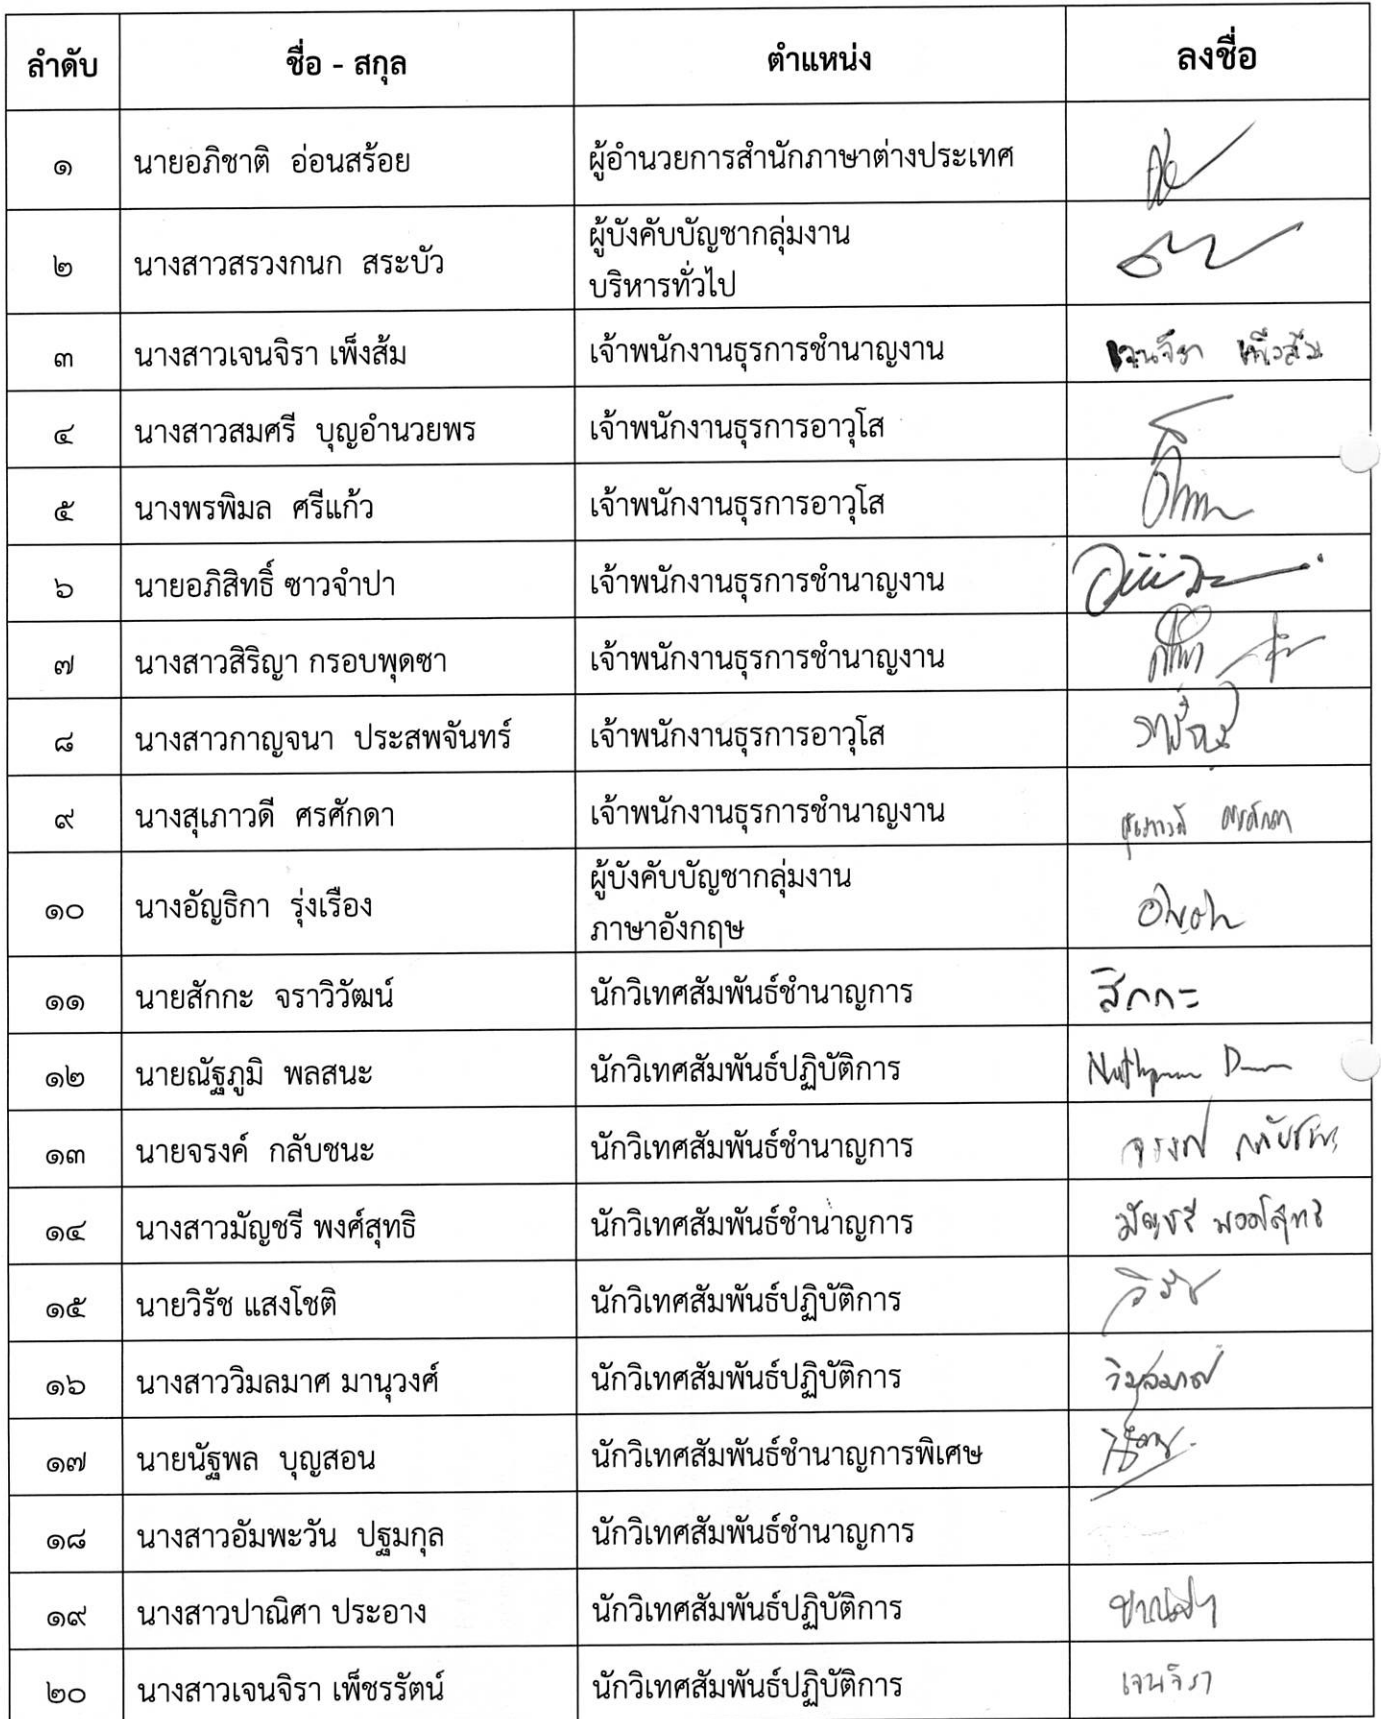 ลำดับ ชื่อ - สกุล ตำแหน่ง ลงชื่อ
๑ นายอภิชาติ อ่อนสร้อย ผู้อำนวยการสำนักภาษาต่างประเทศ
๒ นางสาวสรวงกนก สระบัว ผู้บังคับบัญชากลุ่มงาน
บริหารทั่วไป
๓ นางสาวเจนจิรา เพ็งส้ม เจ้าพนักงานธุรการชำนาญงาน เจนจิรา เพ็งส้ม
๔ นางสาวสมศรี บุญอำนวยพร เจ้าพนักงานธุรการอาวุโส
๕ นางพรพิมล ศรีแก้ว เจ้าพนักงานธุรการอาวุโส
๖ นายอภิสิทธิ์ ซาวจำปา เจ้าพนักงานธุรการชำนาญงาน
๗ นางสาวสิริญา กรอบพุดซา เจ้าพนักงานธุรการชำนาญงาน
๘ นางสาวกาญจนา ประสพจันทร์ เจ้าพนักงานธุรการอาวุโส
๙ นางสุเภาวดี ศรศักดา เจ้าพนักงานธุรการชำนาญงาน สุเภาวดี ศรศักดา
๑๐ นางอัญธิกา รุ่งเรือง ผู้บังคับบัญชากลุ่มงาน
ภาษาอังกฤษ
๑๑ นายสักกะ จราวิวัฒน์ นักวิเทศสัมพันธ์ชำนาญการ สักกะ
๑๒ นายณัฐภูมิ พลสนะ นักวิเทศสัมพันธ์ปฏิบัติการ
๑๓ นายจรงค์ กลับชนะ นักวิเทศสัมพันธ์ชำนาญการ จรงค์ กลับชนะ
๑๔ นางสาวมัญชรี พงศ์สุทธิ นักวิเทศสัมพันธ์ชำนาญการ มัญชรี พงศ์สุทธิ
๑๕ นายวิรัช แสงโชติ นักวิเทศสัมพันธ์ปฏิบัติการ วิรัช
๑๖ นางสาววิมลมาศ มานุวงศ์ นักวิเทศสัมพันธ์ปฏิบัติการ วิมลมาศ
๑๗ นายนัฐพล บุญสอน นักวิเทศสัมพันธ์ชำนาญการพิเศษ
๑๘ นางสาวอัมพะวัน ปฐมกุล นักวิเทศสัมพันธ์ชำนาญการ
๑๙ นางสาวปาณิศา ประอาง นักวิเทศสัมพันธ์ปฏิบัติการ ปาณิศา
๒๐ นางสาวเจนจิรา เพ็ชรรัตน์ นักวิเทศสัมพันธ์ปฏิบัติการ เจนจิรา